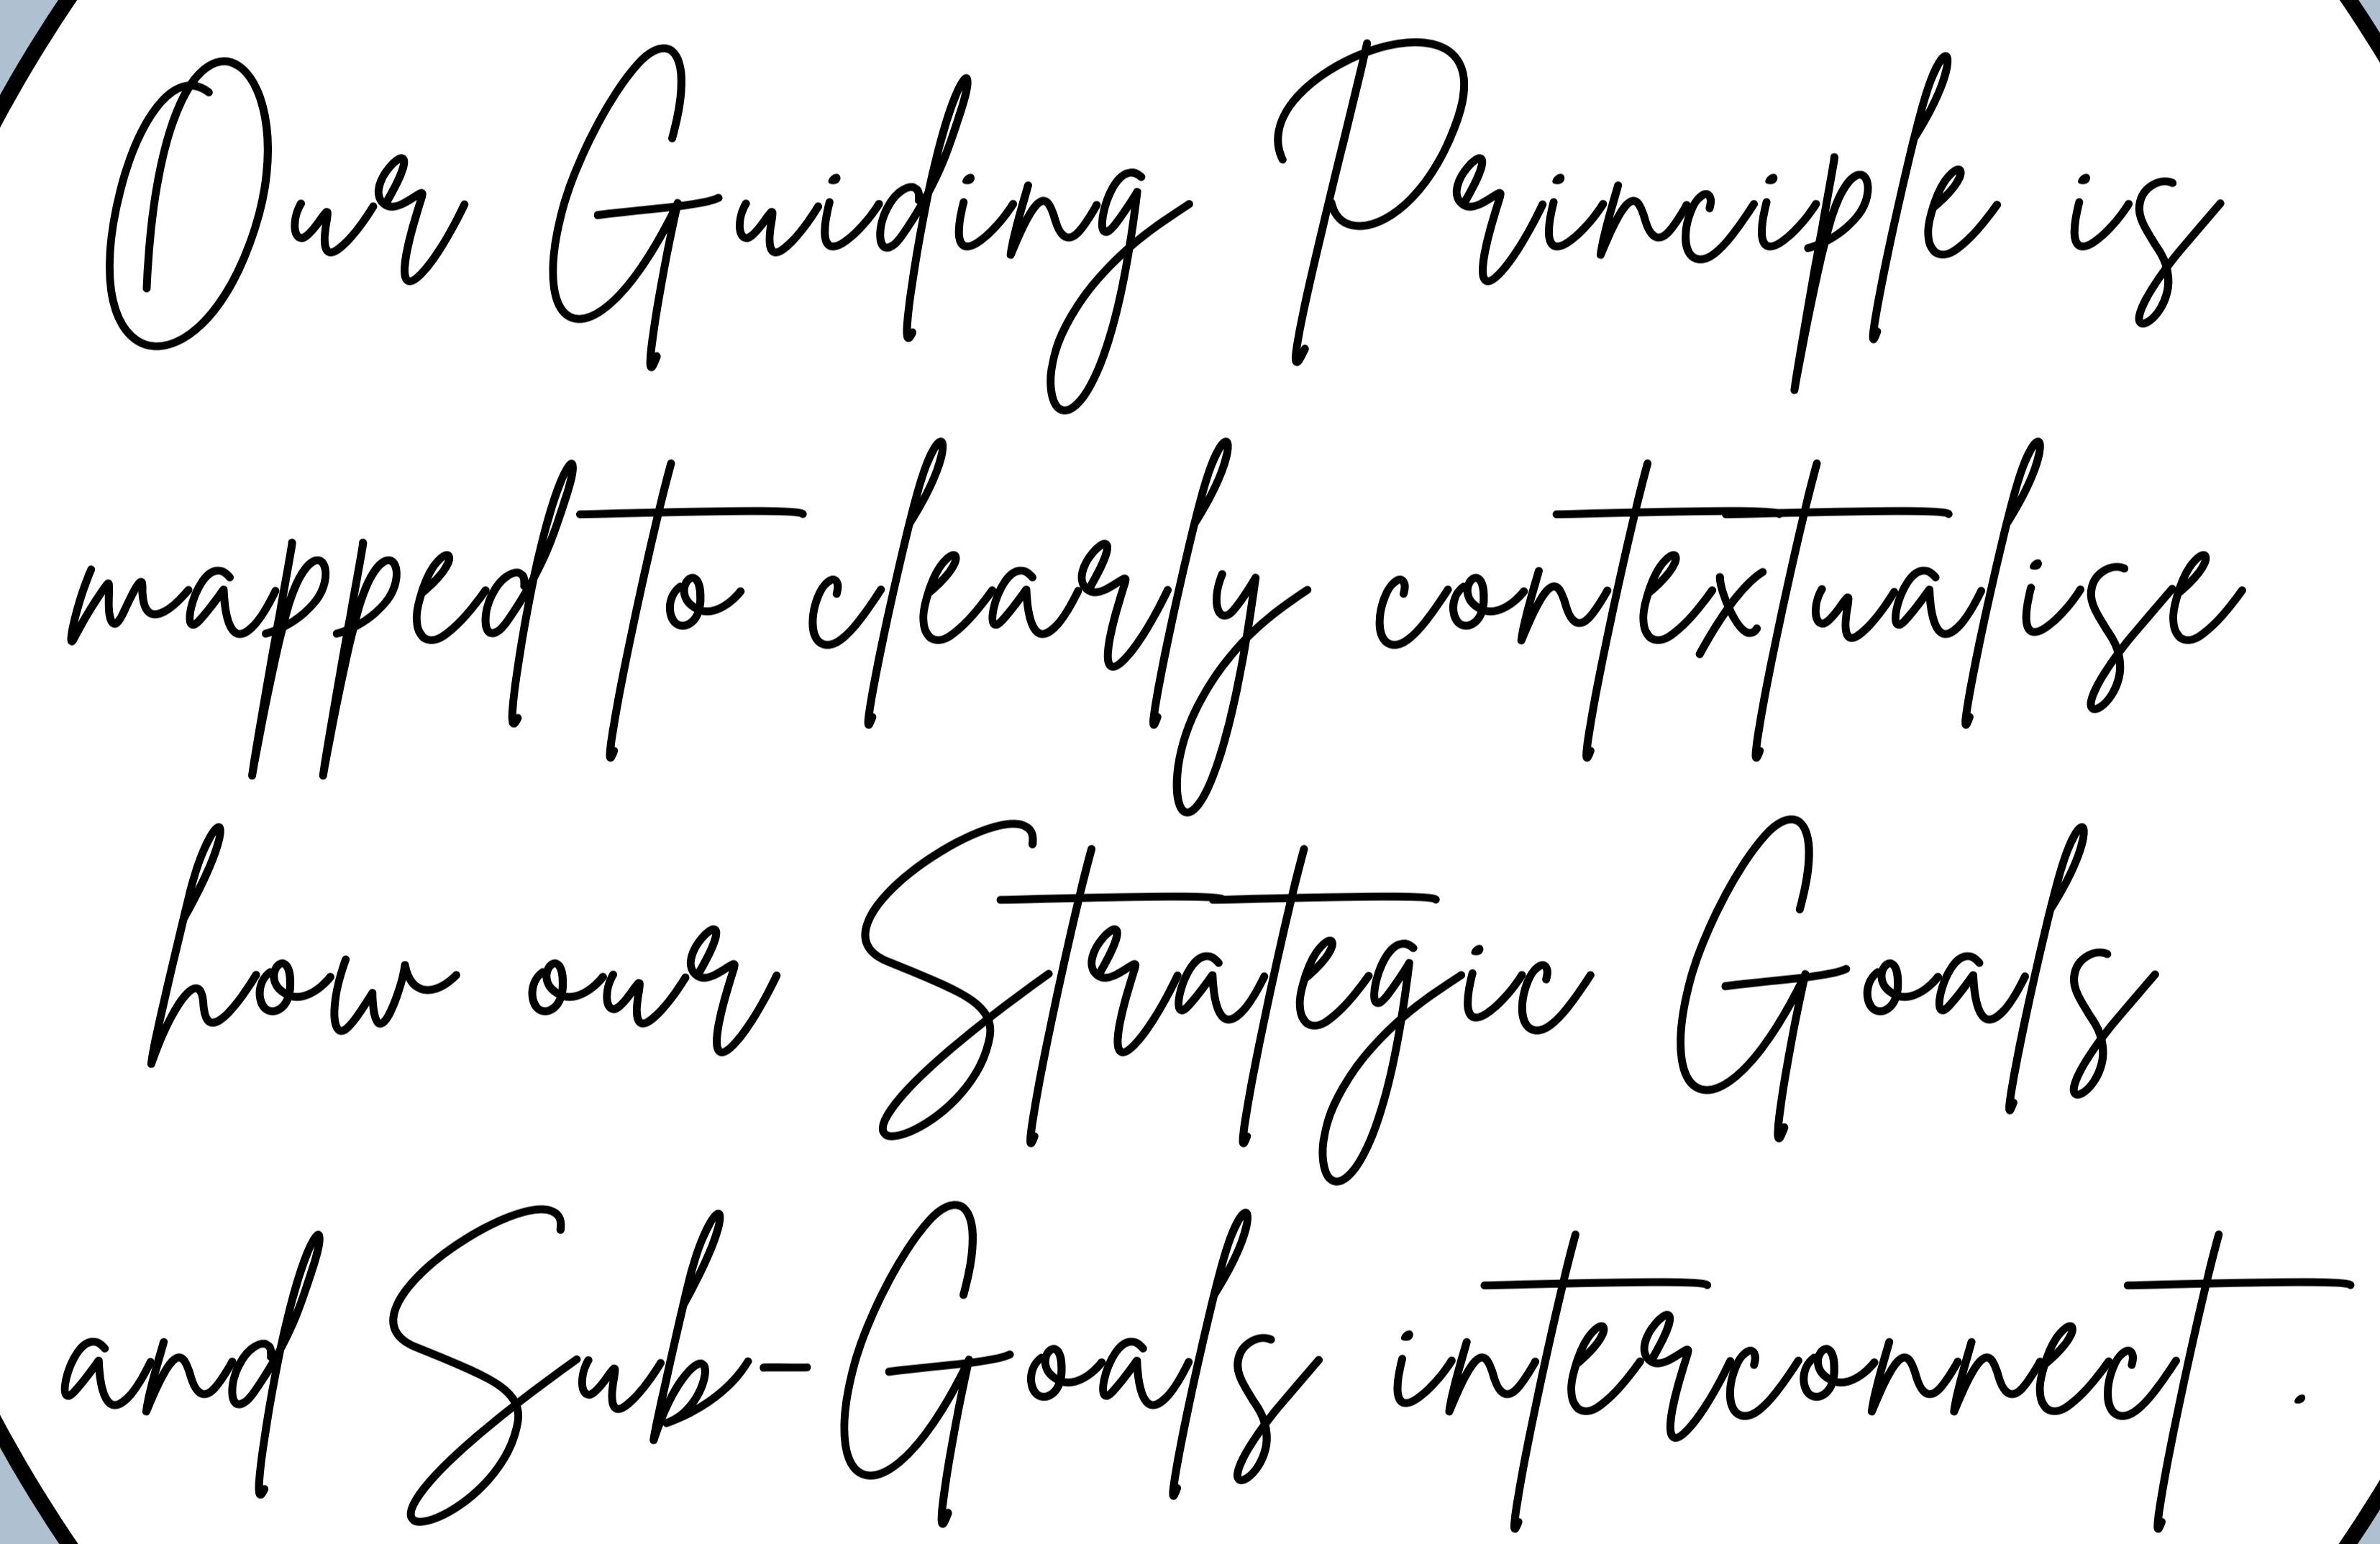 Our Guiding Principle is
mapped to clearly contextualise
how our Strategic Goals
and Sub-Goals interconnect.